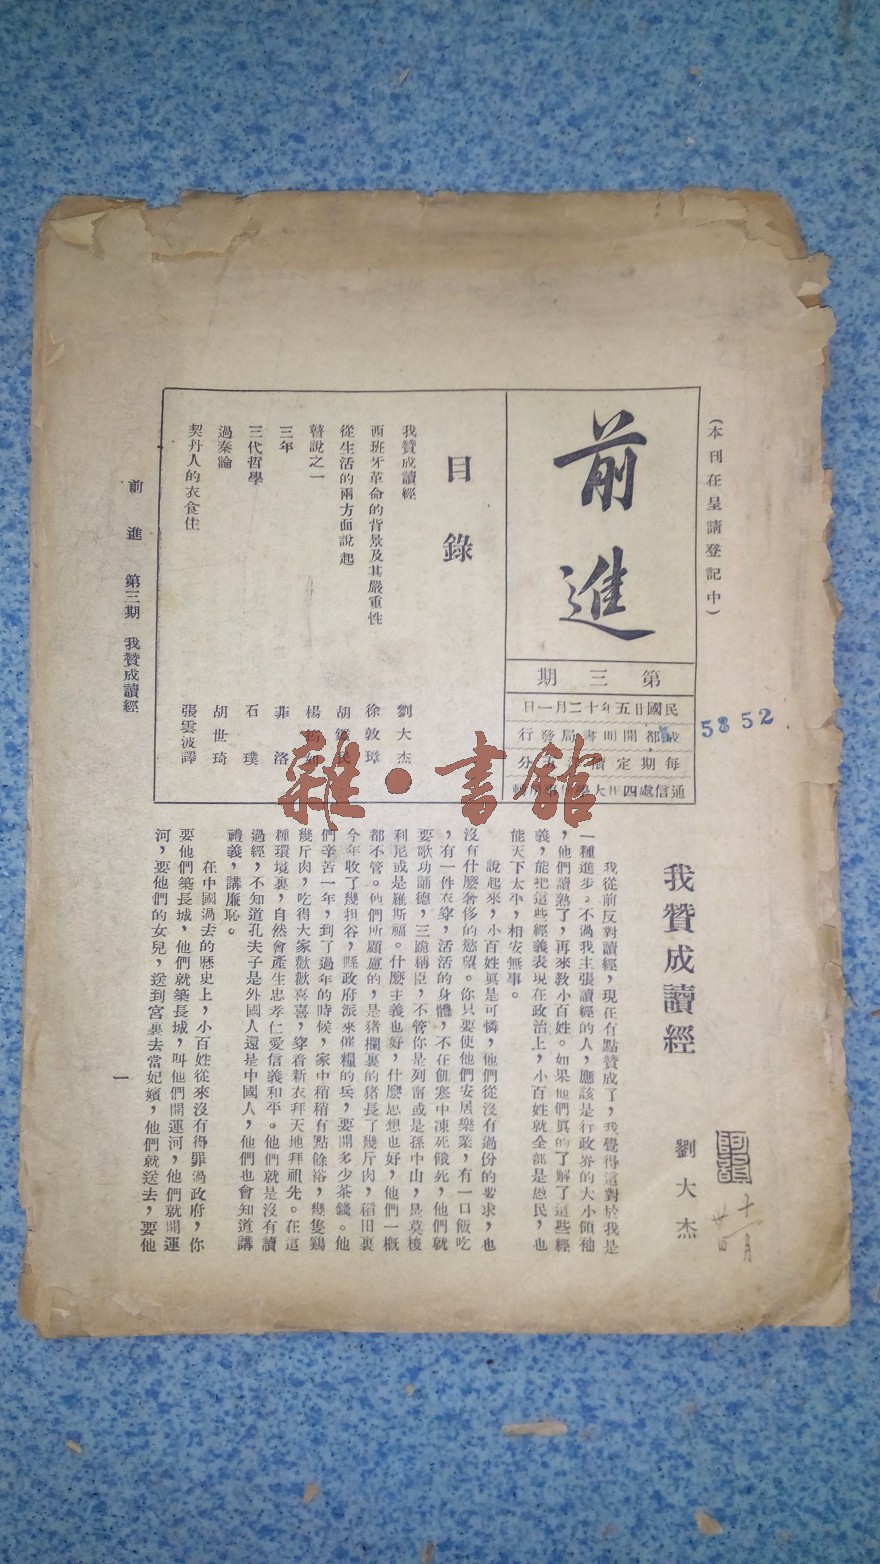 (本刊在呈請登記中)
前進
第三期
民國廿五年十二月一日
成都開明書局發行
每期定價 五分
通信處四川大學
5852
目錄
我贊成讀經 劉大杰
西班牙革命的背景及其嚴重性 徐敦璋
從生活的兩方面說起 胡 民
瞽說之一 楊 如
三年 菲洛
三代哲學 石璞
過秦論 胡世琦
契丹人的衣食住 張雲波譯
雜·書館
我贊成讀經
劉大杰
十一月
廿日
我從前反對讀經,現在有點贊成了,我覺得這對於我是
一種進步。不過我主張讀經的人,應該是行政界的大小領袖
,他們讀熟了,再來教小百姓。如果他們真的了解了這些經
義,能把這些經義表現在政治上,小百姓就全部是愚民,也
能天下太平,相安無事。
說起來,小百姓真是可憐,他們從沒有過份的要求,也
沒有什麼奢侈的慾望。你只要使他們安居樂業,有一口飯吃
,有一件衣穿,活活的身體,不在飢寒中凍死餓死,他們就
要歌功誦德,三跪稱臣,不管你是列甯或是孫中山,是莫梭
利尼或是羅斯福。什麼主義也好,什麼思想也好,他們一概
都不管。他們所顧慮的,是猪欄裏的猪長了幾斤肉,稻田裏
今年收了幾担谷,縣政府派來催糧的兵,要開多少茶錢。他
們辛苦一年,到了過年的時候,家中稍稍有點餘裕,幾隻鷄
幾斤肉,吃得大家歡歡喜喜,穿着新衣拜天地拜祖先。在這
種環境裏,自然會產生忠孝仁愛信義和平。他們就是沒有讀
過經,不知道孔夫子是外國人還是中國人,他們也會知道講
禮義,講廉恥。
在中國過去的歷史上,小百姓從來沒有得罪過政府,你
要他們築長城,他們就築長城,叫他們開運河,他們就開運
河,要他們的女兒,送到宮裏去當妃嬪,他們就送去,要他
前進 第三期 我贊成讀經
一